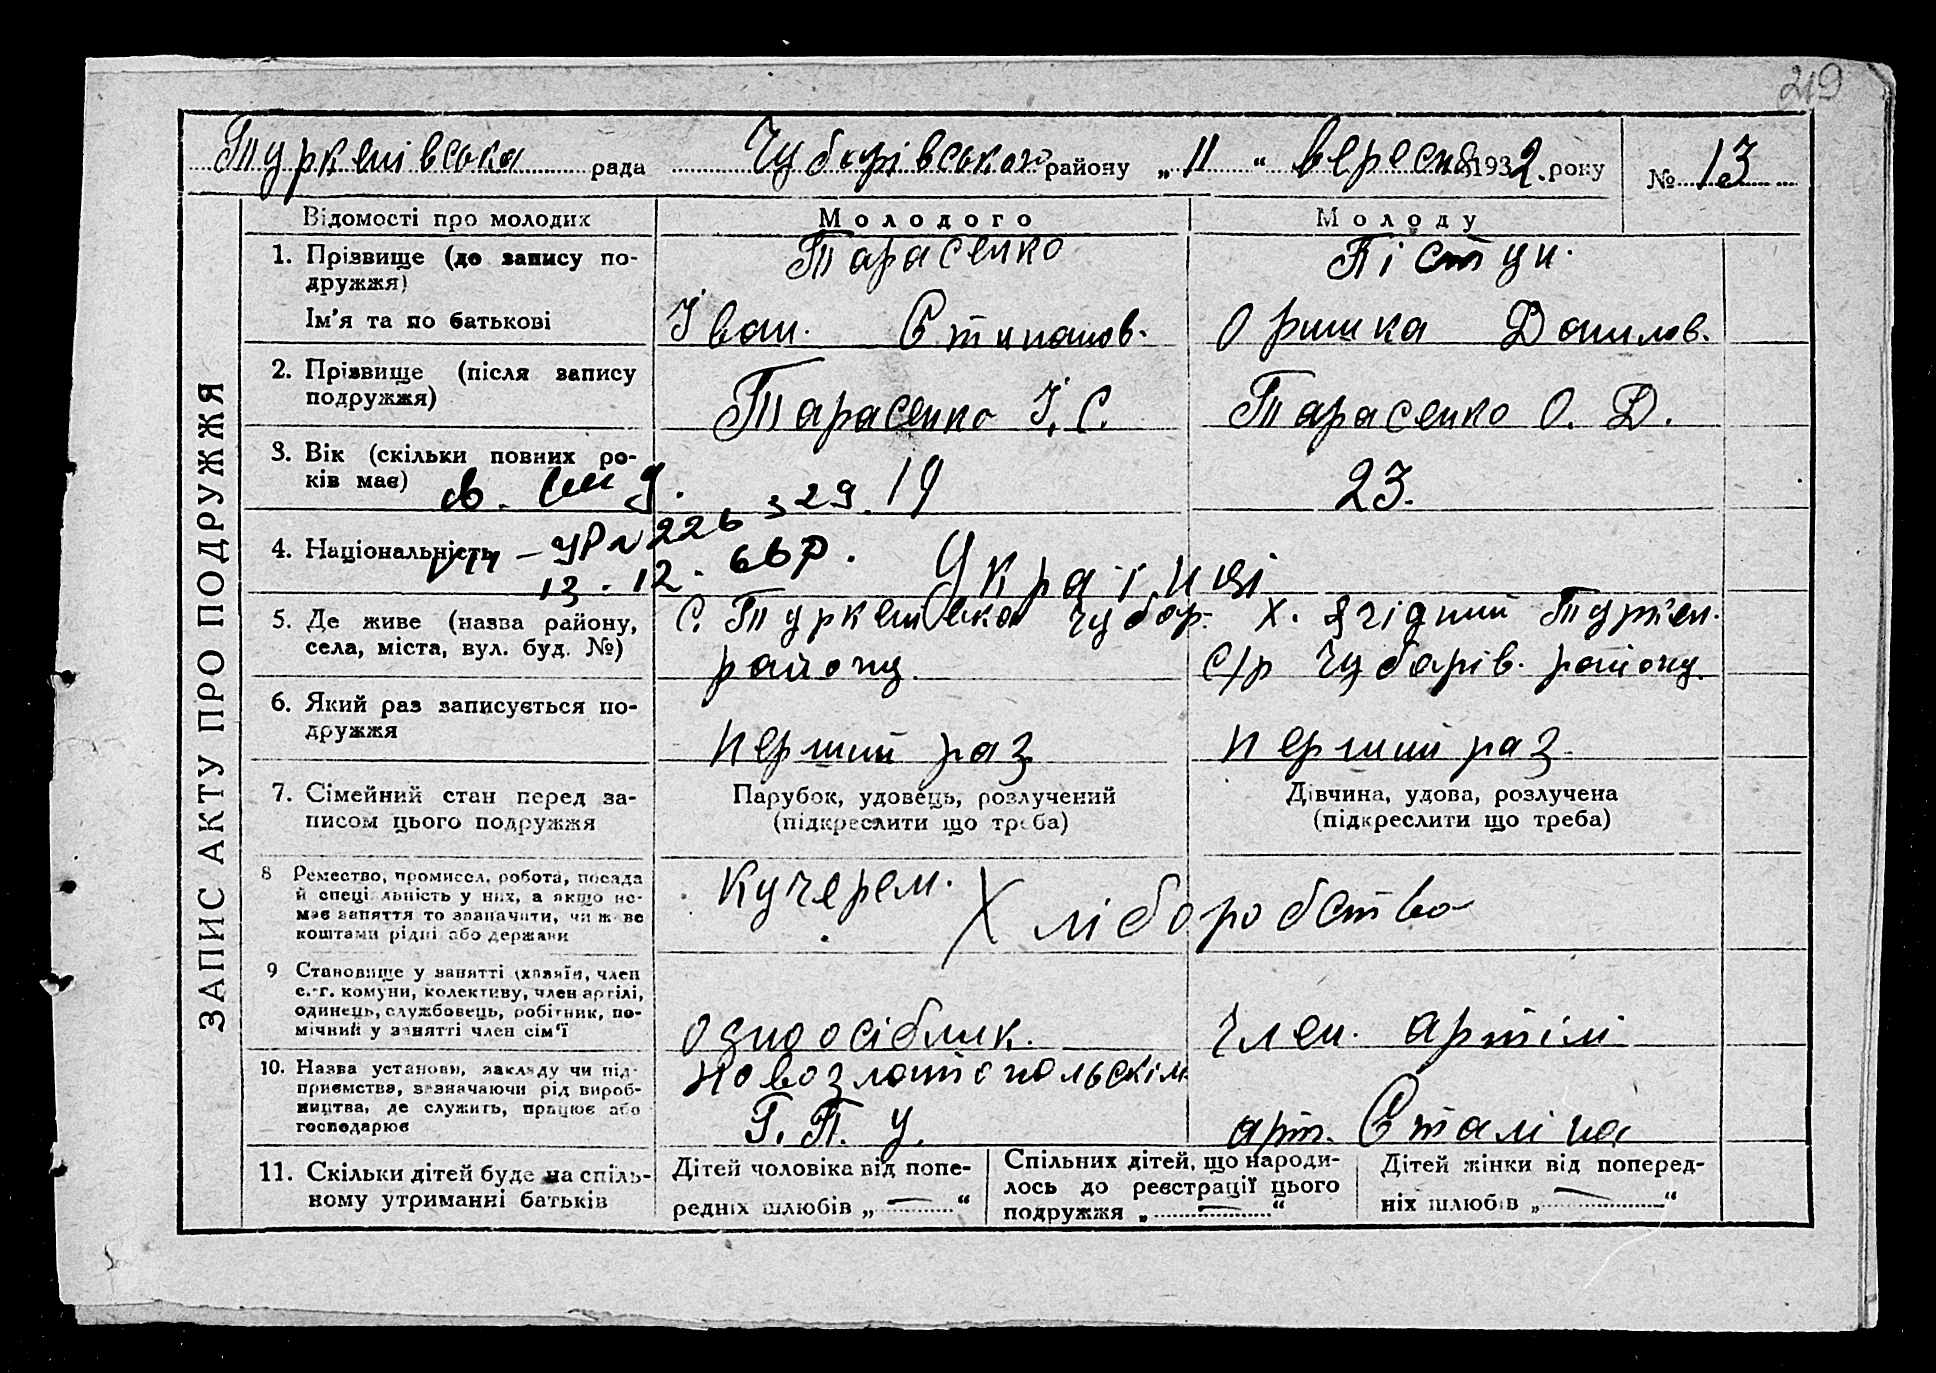 219
Туркенівська рада Чубарівського району „11“ вересня 1932. року № 13
ЗАПИС АКТУ ПРО ПОДРУЖЖЯ
Відомості про молодих Молодого Молоду
1. Прізвище (до запису по-
дружжя)
Тарасенко Пістун.
Ім'я та по батькові Іван. Степанов. Оришка Данилов.
2. Прізвище (після запису
подружжя)
Тарасенко І. С. Тарасенко О. Д.
3. Вік (скільки повних ро-
ків має)
19 23.
4. Національність Українці
УР № 226 з 29.
13. 12. 66 р.
5. Де живе (назва району,
села, міста, вул. буд. №)
С. Туркенівка Чубар. району
х. Ягідний Туркен. с/р Чубарів. району.
6. Який раз записується по-
дружжя
перший раз перший раз
7. Сімейний стан перед за-
писом цього подружжя
Парубок, удовець, розлучений
(підкреслити що треба)
Дівчина, удова, розлучена
(підкреслити що треба)
8 Ремество, промисел, робота, посада
й спеціальність у них, а якщо не-
має заняття то зазначити, чи живе
коштами рідні або держави
Кучерем. Хліборобство
9 Становище у занятті (хазяїн, член
с.-г. комуни, колективу, член артілі,
одинець, службовець, робітник, по-
мічний у занятті член сім'ї
одноосібник. Член. артілі
10. Назва установи, закладу чи під-
приємства, зазначаючи рід вироб-
ництва, де служить, працює або
господарює
Новозлатопольскім
Г. П. У. арт. Сталіна
11. Скільки дітей буде на спіль-
ному утриманні батьків
Дітей чоловіка від попе-
редніх шлюбів „—“
Спільних дітей, що народи-
лось до реєстрації цього
подружжя „—“
Дітей жінки від поперед-
ніх шлюбів „—“